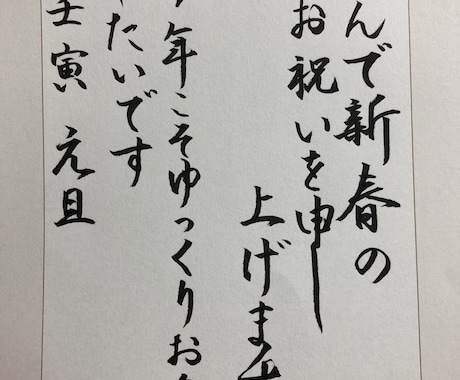 んで新春の
お祝いを申し
上げます
年こそゆっくりお
たいです
壬寅 元旦